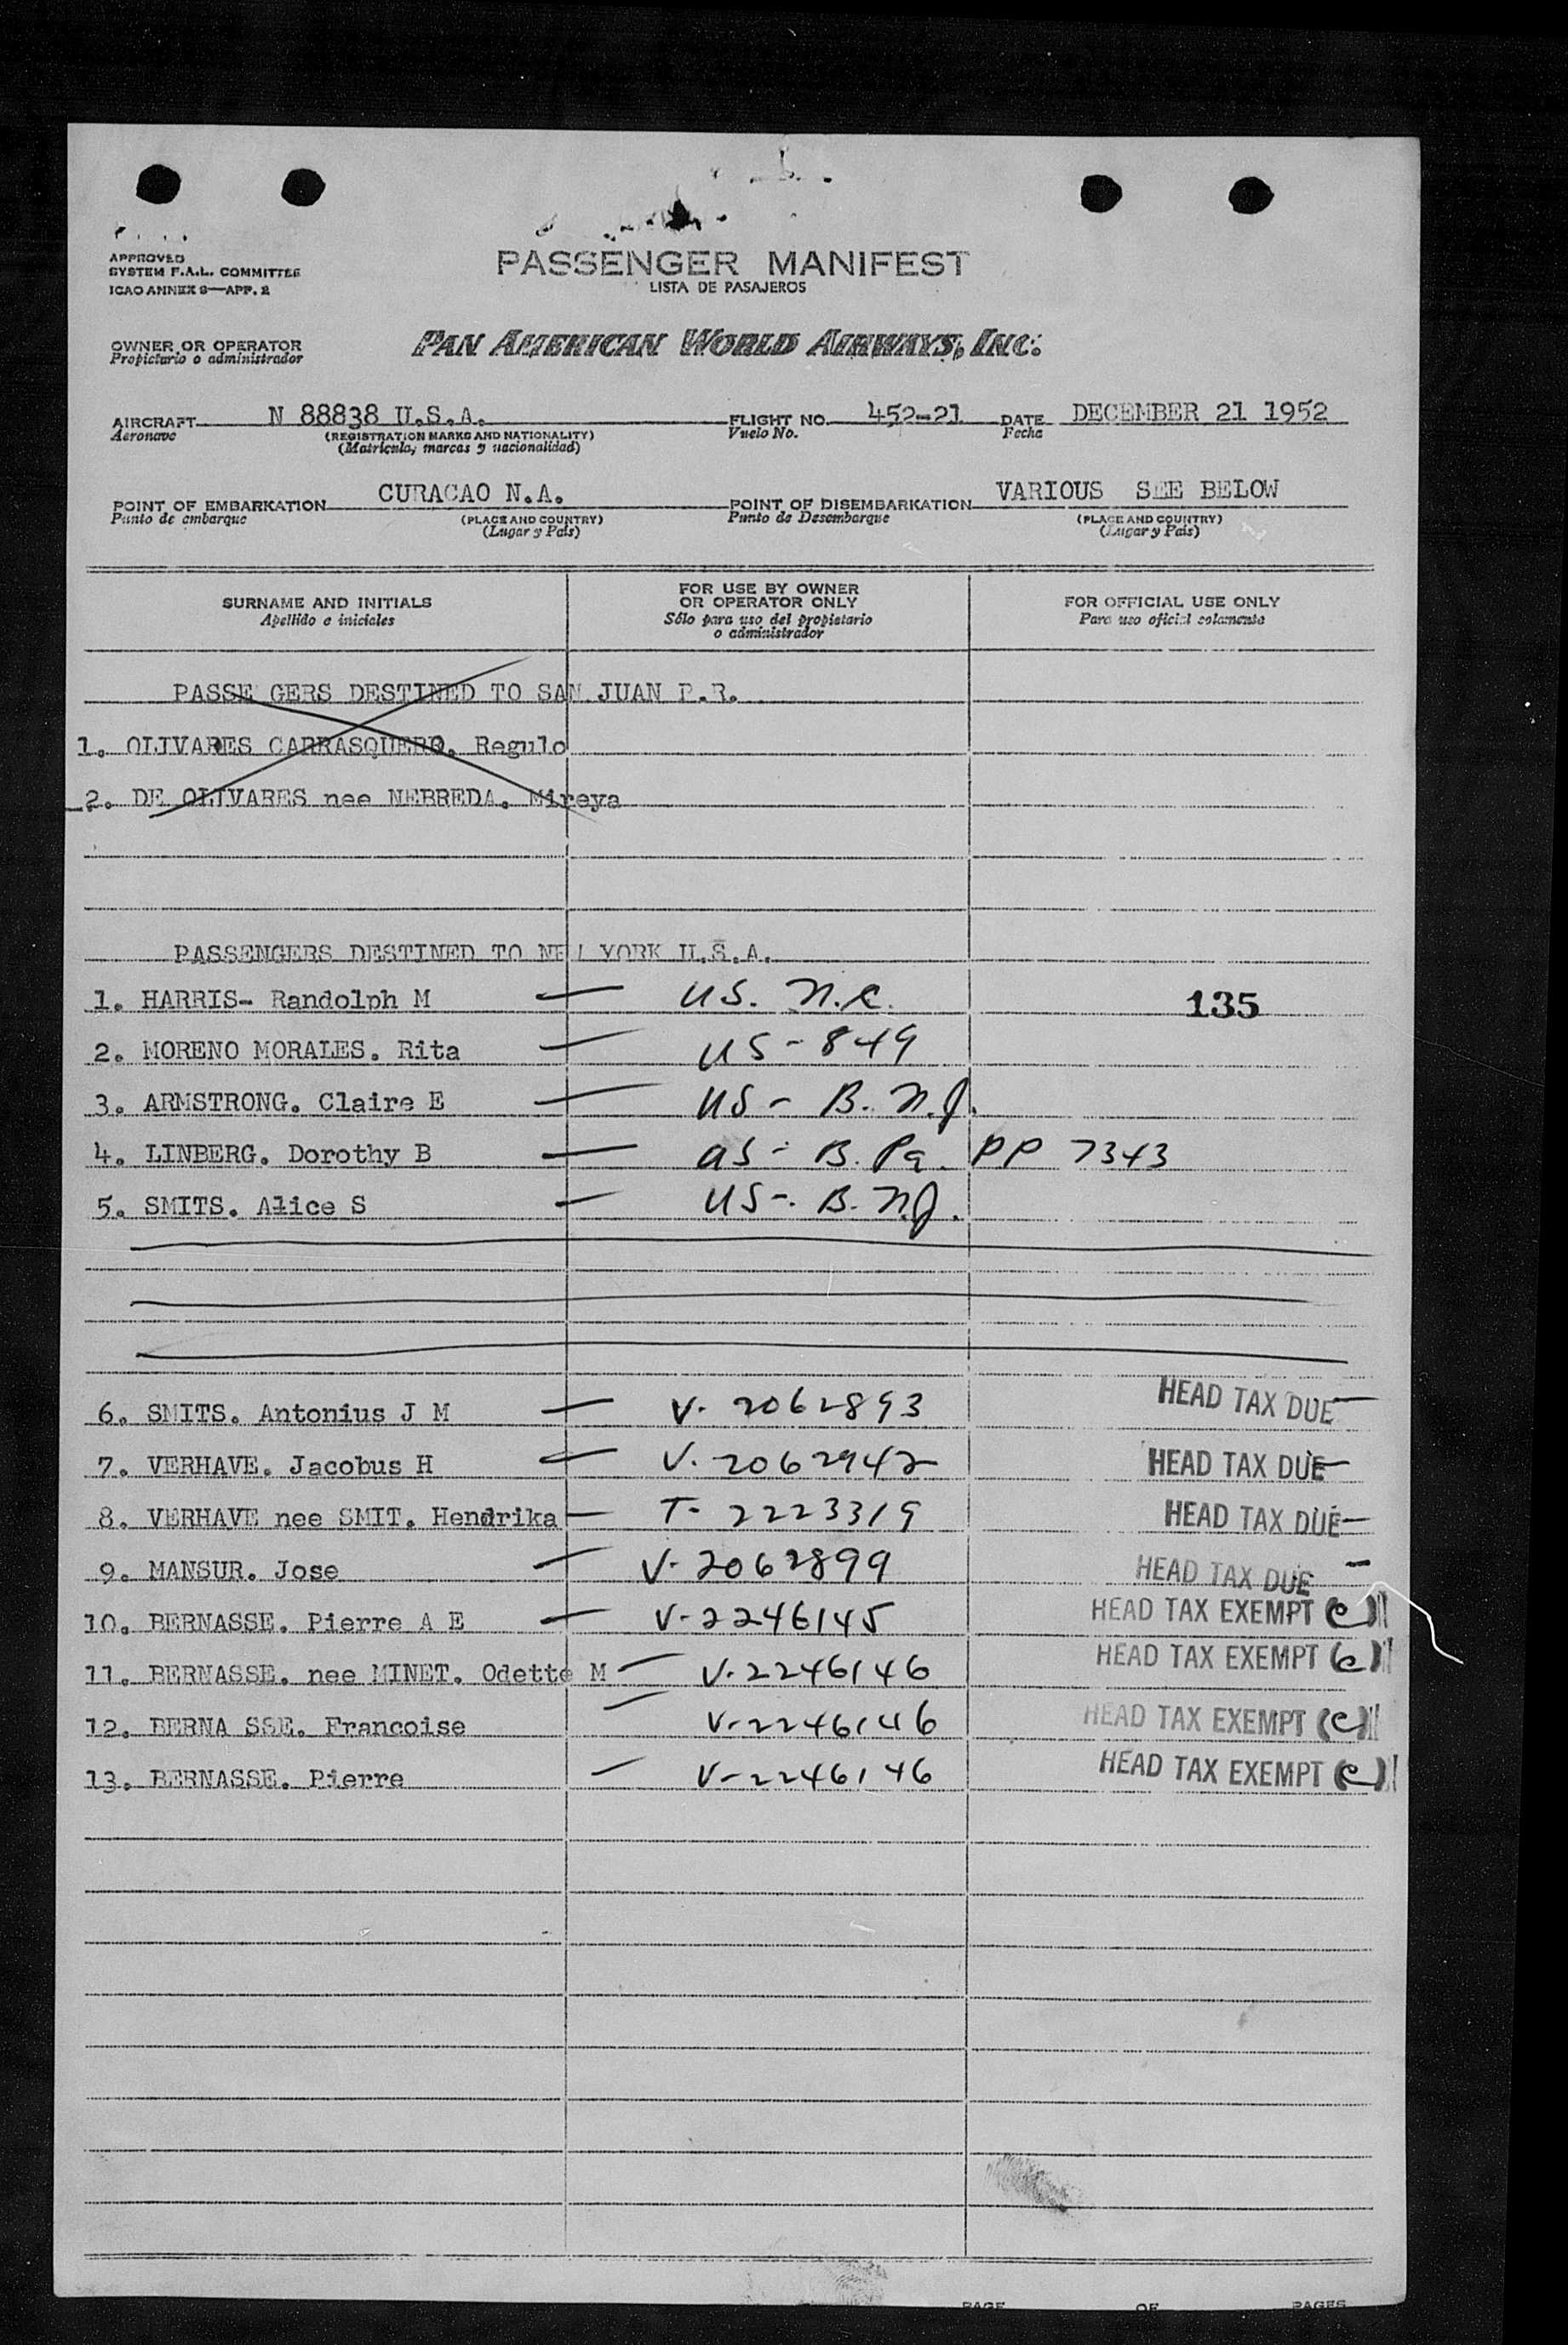 APPROVED
SYSTEM F.A.L. COMMITTEE
ICAO ANNEX 9—APP. 2
PASSENGER MANIFEST
LISTA DE PASAJEROS
OWNER OR OPERATOR
Propietario o administrador
PAN AMERICAN WORLD AIRWAYS, INC.
AIRCRAFT N 88838 U.S.A. FLIGHT NO. 452-21 DATE DECEMBER 21 1952
Aeronave (REGISTRATION MARKS AND NATIONALITY) Vuelo No. Fecha
(Matricula, marcas y nacionalidad)
POINT OF EMBARKATION CURACAO N.A. POINT OF DISEMBARKATION VARIOUS SEE BELOW
Punto de embarque (PLACE AND COUNTRY) Punto de Desembarque (PLACE AND COUNTRY)
(Lugar y País) (Lugar y País)
SURNAME AND INITIALS
Apellido e iniciales
FOR USE BY OWNER
OR OPERATOR ONLY
Sólo para uso del propietario
o administrador
FOR OFFICIAL USE ONLY
Para uso oficial solamente
PASSE GERS DESTINED TO SAN JUAN P.R.
1. OLIVARES CARRASQUERO. Regulo
2. DE OLIVARES nee NEBREDA. Mireya
PASSENGERS DESTINED TO NEW YORK U.S.A.
1. HARRIS- Randolph M — US. N.C. 135
2. MORENO MORALES. Rita — US - 849
3. ARMSTRONG. Claire E — US - B. N.J.
4. LINBERG. Dorothy B — US - B. Pa. PP 7343
5. SMITS. Alice S — US -. B. N.J.
6. SMITS. Antonius J M — V. 2062893 HEAD TAX DUE —
7. VERHAVE. Jacobus H — V. 2062942 HEAD TAX DUE —
8. VERHAVE nee SMIT. Hendrika — T- 2223319 HEAD TAX DUE —
9. MANSUR. Jose — V- 2062899 HEAD TAX DUE —
10. BERNASSE. Pierre A E — V-2246145 HEAD TAX EXEMPT (c)
11. BERNASSE. nee MINET. Odette M — V.2246146 HEAD TAX EXEMPT (c)
12. BERNA SSE. Francoise — V-2246146 HEAD TAX EXEMPT (c)
13. BERNASSE. Pierre — V-2246146 HEAD TAX EXEMPT (c)
PAGE OF PAGES